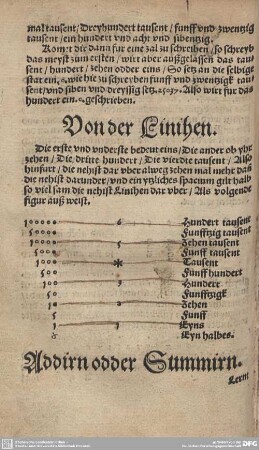 mal tausent/ dreyhundert tausent/ funff vnd zwentzig
tausent/ ein hundert vnd acht vnd sibentzig.
Kompt dir dann fur eine zal zu schreiben/ so schreyb
das meyst zum ersten/ wirt aber außgelassen das tau
sent/ hundert/ zehen odder eins/ So setz an die selbige
stat ein .0. wie hie zu schreyben funff vnd zwentzigk tau
sent/ vnd siben vnd dreyssig setz.25037. Also wirt fur das
hundert ein .0. geschrieben.
Von der Linihen.
Die erste vnd vnderste bedeut eins/ Die ander ob yhr
zehen/ Die dritte hundert/ Die vierdte tausent/ Also
hinfurt/ die nehist dar vber alweg zehen mal mehr dan
die nehist darunder/ vnd ein ytzliches spacium gilt halb
so viel sam die nehist Linihen dar vber/ Als volgende
figur auß weist.
100000 6 Hundert tausent
50000 Funfftzig tausent
10000 5 Zehen tausent
5000 Funff tausent
1000 * Tausent
500 Funff hundert
100 3 Hundert
50 Funfftzigk
10 2 Zehen
5 Funff
1 1 Eyns
Eyn halbes.
Addirn odder Summirn.